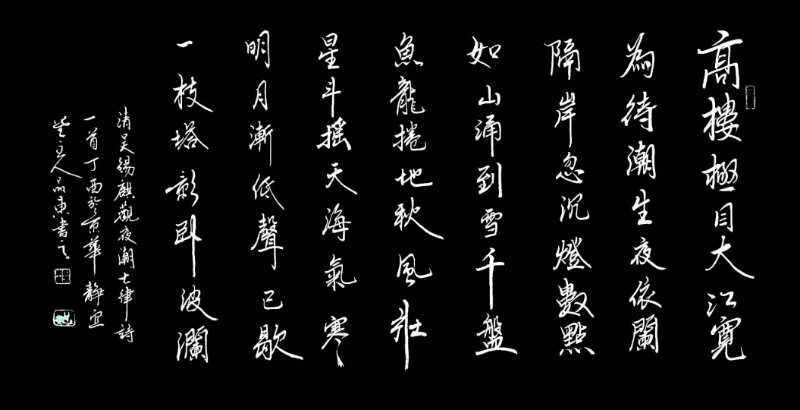 高樓極目大江寬
為待潮生夜依闌
隔岸忽沉燈數點
如山涌到雪千盤
魚龍捲地秋風壯
星斗搖天海氣寒
明月漸低聲已歇
一枝塔影卧波瀾
清吳錫麒觀夜潮七律詩
一首丁酉於京華靜宜
堂主人品東書之